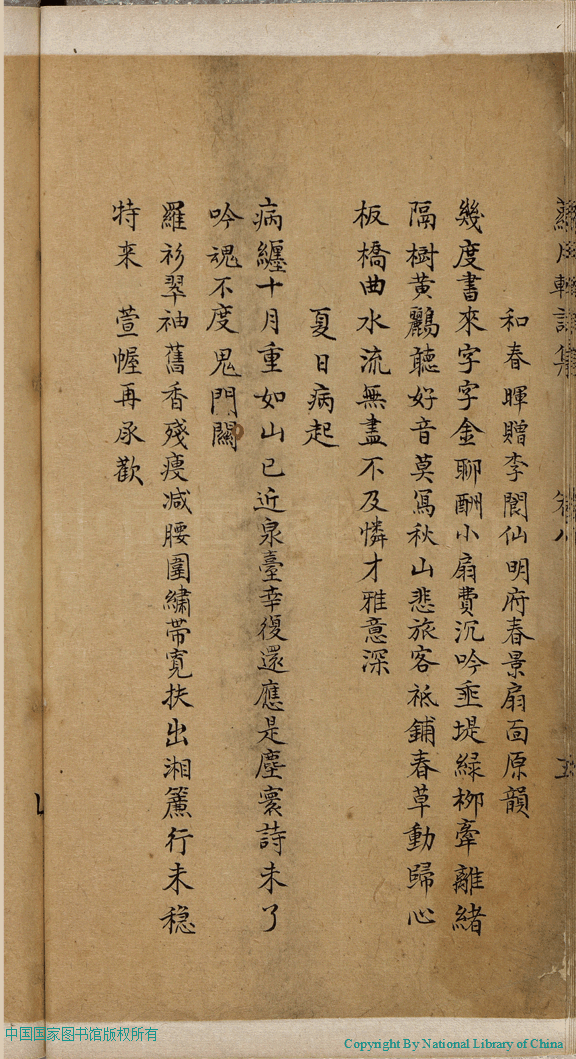 和春暉贈李閬仙明府春景扇面原韻
幾度書來字字金聊酬小扇費沉吟垂堤緑柳牽離緒
隔樹黃鸝聽好音莫寫秋山悲旅客祇鋪春草動歸心
板橋曲水流無盡不及憐才雅意深
夏日病起
病纏十月重如山已近泉臺幸復還應是塵寰詩未了
吟魂不度鬼門關
羅衫翠袖舊香殘瘦减腰圍繡帶寬扶出湘簾行未穏
特来 萱幄再承歡
中国国家图书馆版权所有
Copyright By National Library of China